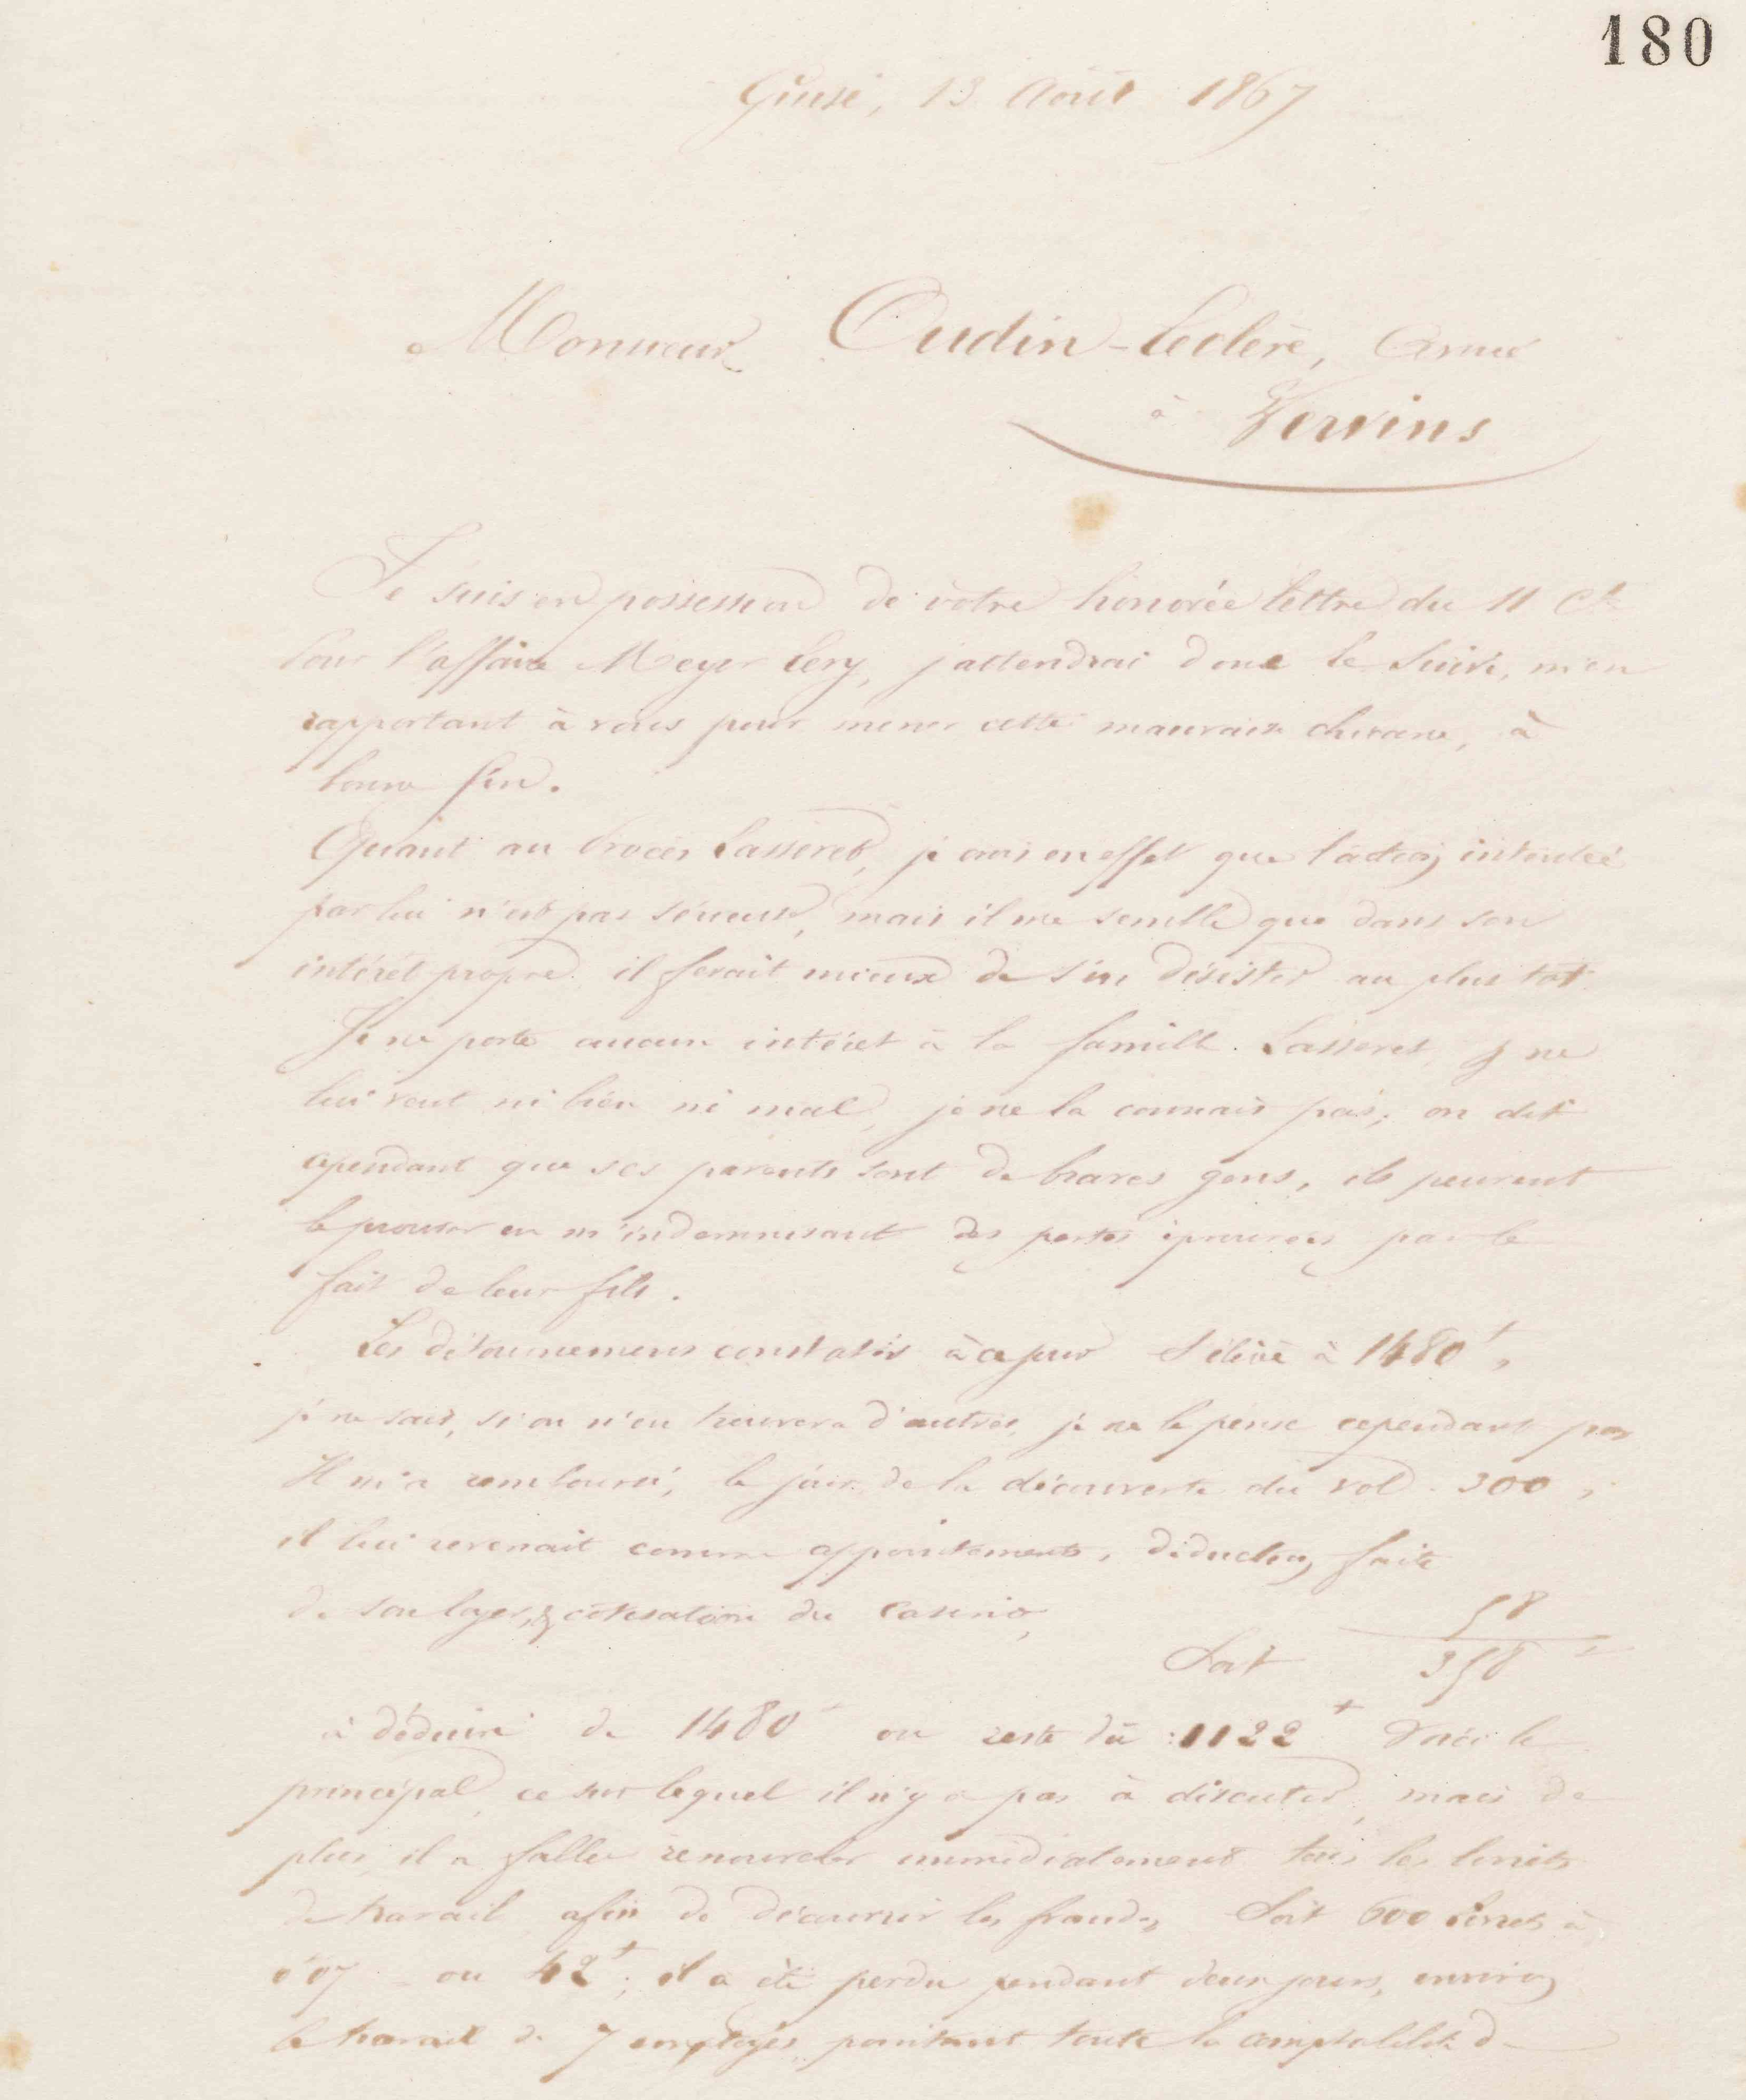 180
Guise, 13 Août 1867
Monsieur Oudin-Leclère, Avoué
à Vervins
Je suis en possession de votre honorée lettre du 11 Ct
Pour l'affaire Meyer Lery, j'attendrai donc le suivi, m'en
rapportant à vous pour mener cette mauvaise chicane, à
bonne fin.
Quant au Procès Lasseret, je crois en effet que l'action intentée
par lui n'est pas sérieuse, mais il me semble que dans son
intérêt propre il ferait mieux de s'en désister au plus tôt
Je ne porte aucun intérêt à la famille Lasseret, je ne
lui veut ni bien ni mal, je ne la connais pas; on dit
cependant que ses parents sont de braves gens, ils peuvent
le prouver en m'indemnisant des pertes éprouvées par le
fait de leur fils.
Les détournemens constatés à ce jour s'élève à 1480 f,
je ne sais, si on n'en trouvera d'autres, je ne le pense cependant pas
Il m'a remboursé, le jour de la découverte du vol 300,
il lui revenait comme appointements, déduction faite
de son loyer, & cotisation du Casino, 58
Soit 358
à déduire de 1480 f ou reste dû 1122 f Voici le
principal, ce sur lequel il n'y a pas à discuter, mais de
plus, il a fallu renouveler immédiatement tous les livrets
de travail afin de découvrir les fraudes Soit 600 livrets à
0f07 - ou 42 f; il a été perdu pendant deux jours, environ
le travail de 7 employés pointant toute la comptabilité d